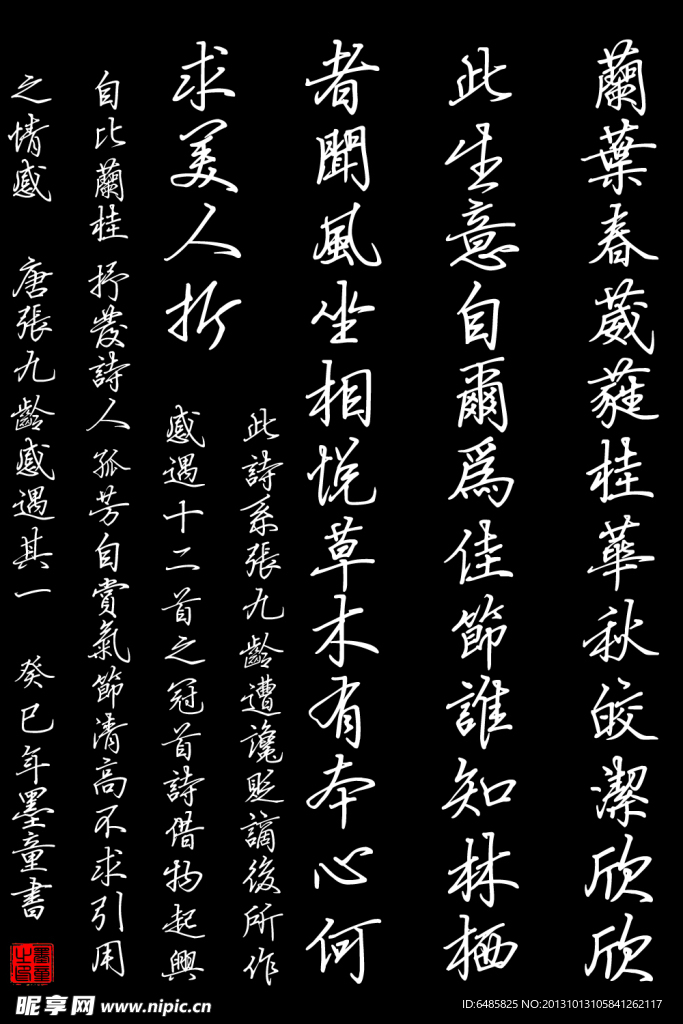 蘭葉春葳蕤桂華秋皎潔欣欣
此生意自爾為佳節誰知林栖
者聞風坐相悅草木有本心何
求美人折
此詩系張九齡遭讒貶謫後所作
感遇十二首之冠首詩借物起興
自比蘭桂抒發詩人孤芳自賞氣節清高不求引用
之情感 唐張九齡感遇其一 癸巳年墨童書
昵享网 www.nipic.cn
ID:6485825 NO:20131013105841262117